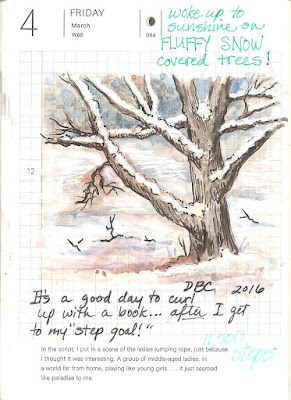 4 FRIDAY
March
W09
064
woke up to
sunshine on
FLUFFY SNOW
covered trees!
12
DBC 2016
It's a good day to curl
up with a book... after I get
to my "step goal!"
11,000
steps
In the script, I put in a scene of the ladies jumping rope, just because
I thought it was interesting. A group of middle-aged ladies, in
a world far from home, playing like young girls . . . it just seemed
like paradise to me.